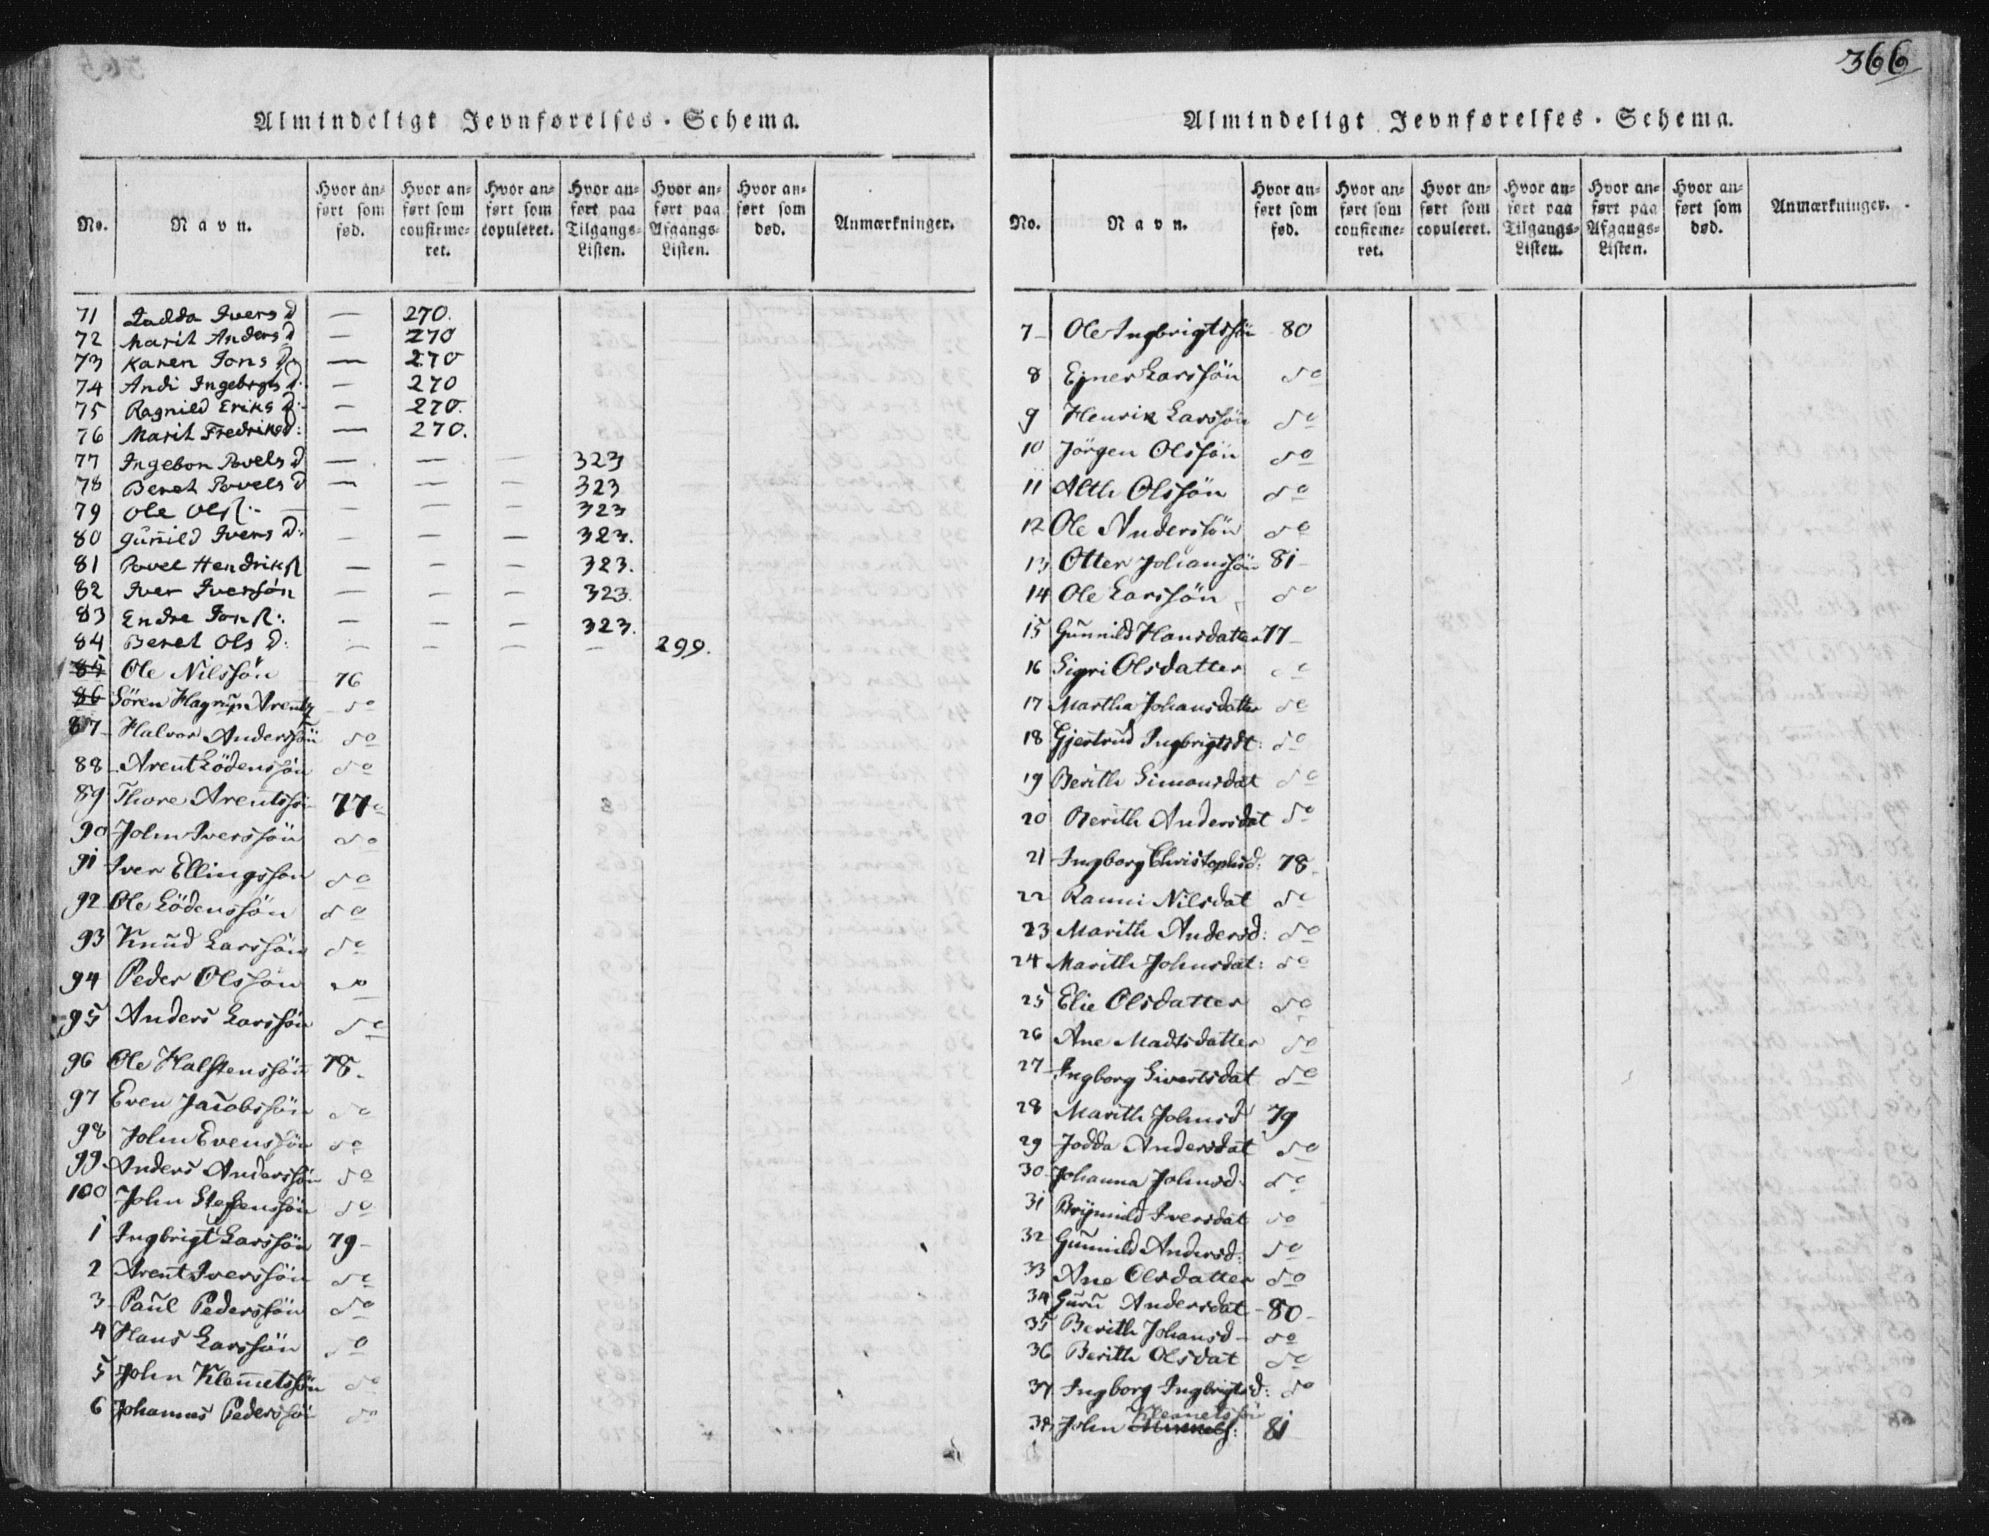 366
Almindeligt Jevnførelses-Schema.
No. Navn. Hvor anført som fød. Hvor anført som confirmeret. Hvor anført som copuleret. Hvor anført paa Tilgangs-Listen. Hvor anført paa Afgangs-Listen. Hvor anført som død. Anmærkninger.
71 Ivers D — 270.
72 Marit Anders D — 270
73 Karen Jons D — 270
74 Andi Ingebrgs D — 270
75 Ragnild Eriks D — 270.
76 Marit Fredriks D: — 270.
77 Ingebor Povels D — — — 323
78 Beret Povels D — — — 323
79 Ole Ols: — — — 323
80 Guñild Ivers D: — — — 323.
81 Povel Hendriks — — — 323.
82 Iver Iversøn — — — 323.
83 Endre Jons: — — — 323.
84 Beret Ols D: — — — — 299.
85 Ole Nilssön 76
86 Sören Hagrup Arentz do
87 Halvor Anderssön do
88 Arent Lödenssön do
89 Thore Arentssön 77
90 John Iverssön do
91 Iver Ellingssön do
92 Ole Lödenssön do
93 Knud Larssön do
94 Peder Olssön do
95 Anders Larssön do
96 Ole Halstenssön 78.
97 Even Jacobssön do
98 John Evenssön do
99 Anders Anderssön do
100 John Steffenssön do
1 Ingbrigt Larssön 79
2 Arent Iverssön do
3 Paul Pederssön do
4 Hans Larssön do
5 John Klemetssön do
6 Johannes Pederssön do
Almindeligt Jevnførelses-Schema.
No. Navn. Hvor anført som fød. Hvor anført som confirmeret. Hvor anført som copuleret. Hvor anført paa Tilgangs-Listen. Hvor anført paa Afgangs-Listen. Hvor anført som død. Anmærkninger.
7 Ole Ingbrigtssön 80
8 Ejner Larssön do
9 Henrik Larssön do
10 Jörgen Olssön do
11 Atle Olssön do
12 Ole Anderssön do
13 Otter Johanssön 81
14 Ole Larssön do
15 Gunnild Hansdatter 77
16 Sigri Olsdatter do
17 Martha Johansdatter do
18 Gjertrud Ingbrigtsdt: do
19 Berith Simonsdat do
20 Berith Andersdat do
21 Ingborg Christophsd: 78.
22 Ranni Nilsdat do
23 Marith Andersd: do
24 Marith Johnsdat: do
25 Elie Olsdatter do
26 Ane Madtsdatter do
27 Ingborg Sivertsdat do
28 Marith Johnsd 79
29 Jodda Andersdat do
30 Johanna Johnsd do
31 Brÿnnild Iversdat do
32 Gunnild Andersd: do
33 Ane Olsdatter do
34 Guru Andersdat 80
35 Berith Johansd do
36 Berith Olsdat do
37 Ingborg Ingbrigtsd: do
38 John Klemetssön 81